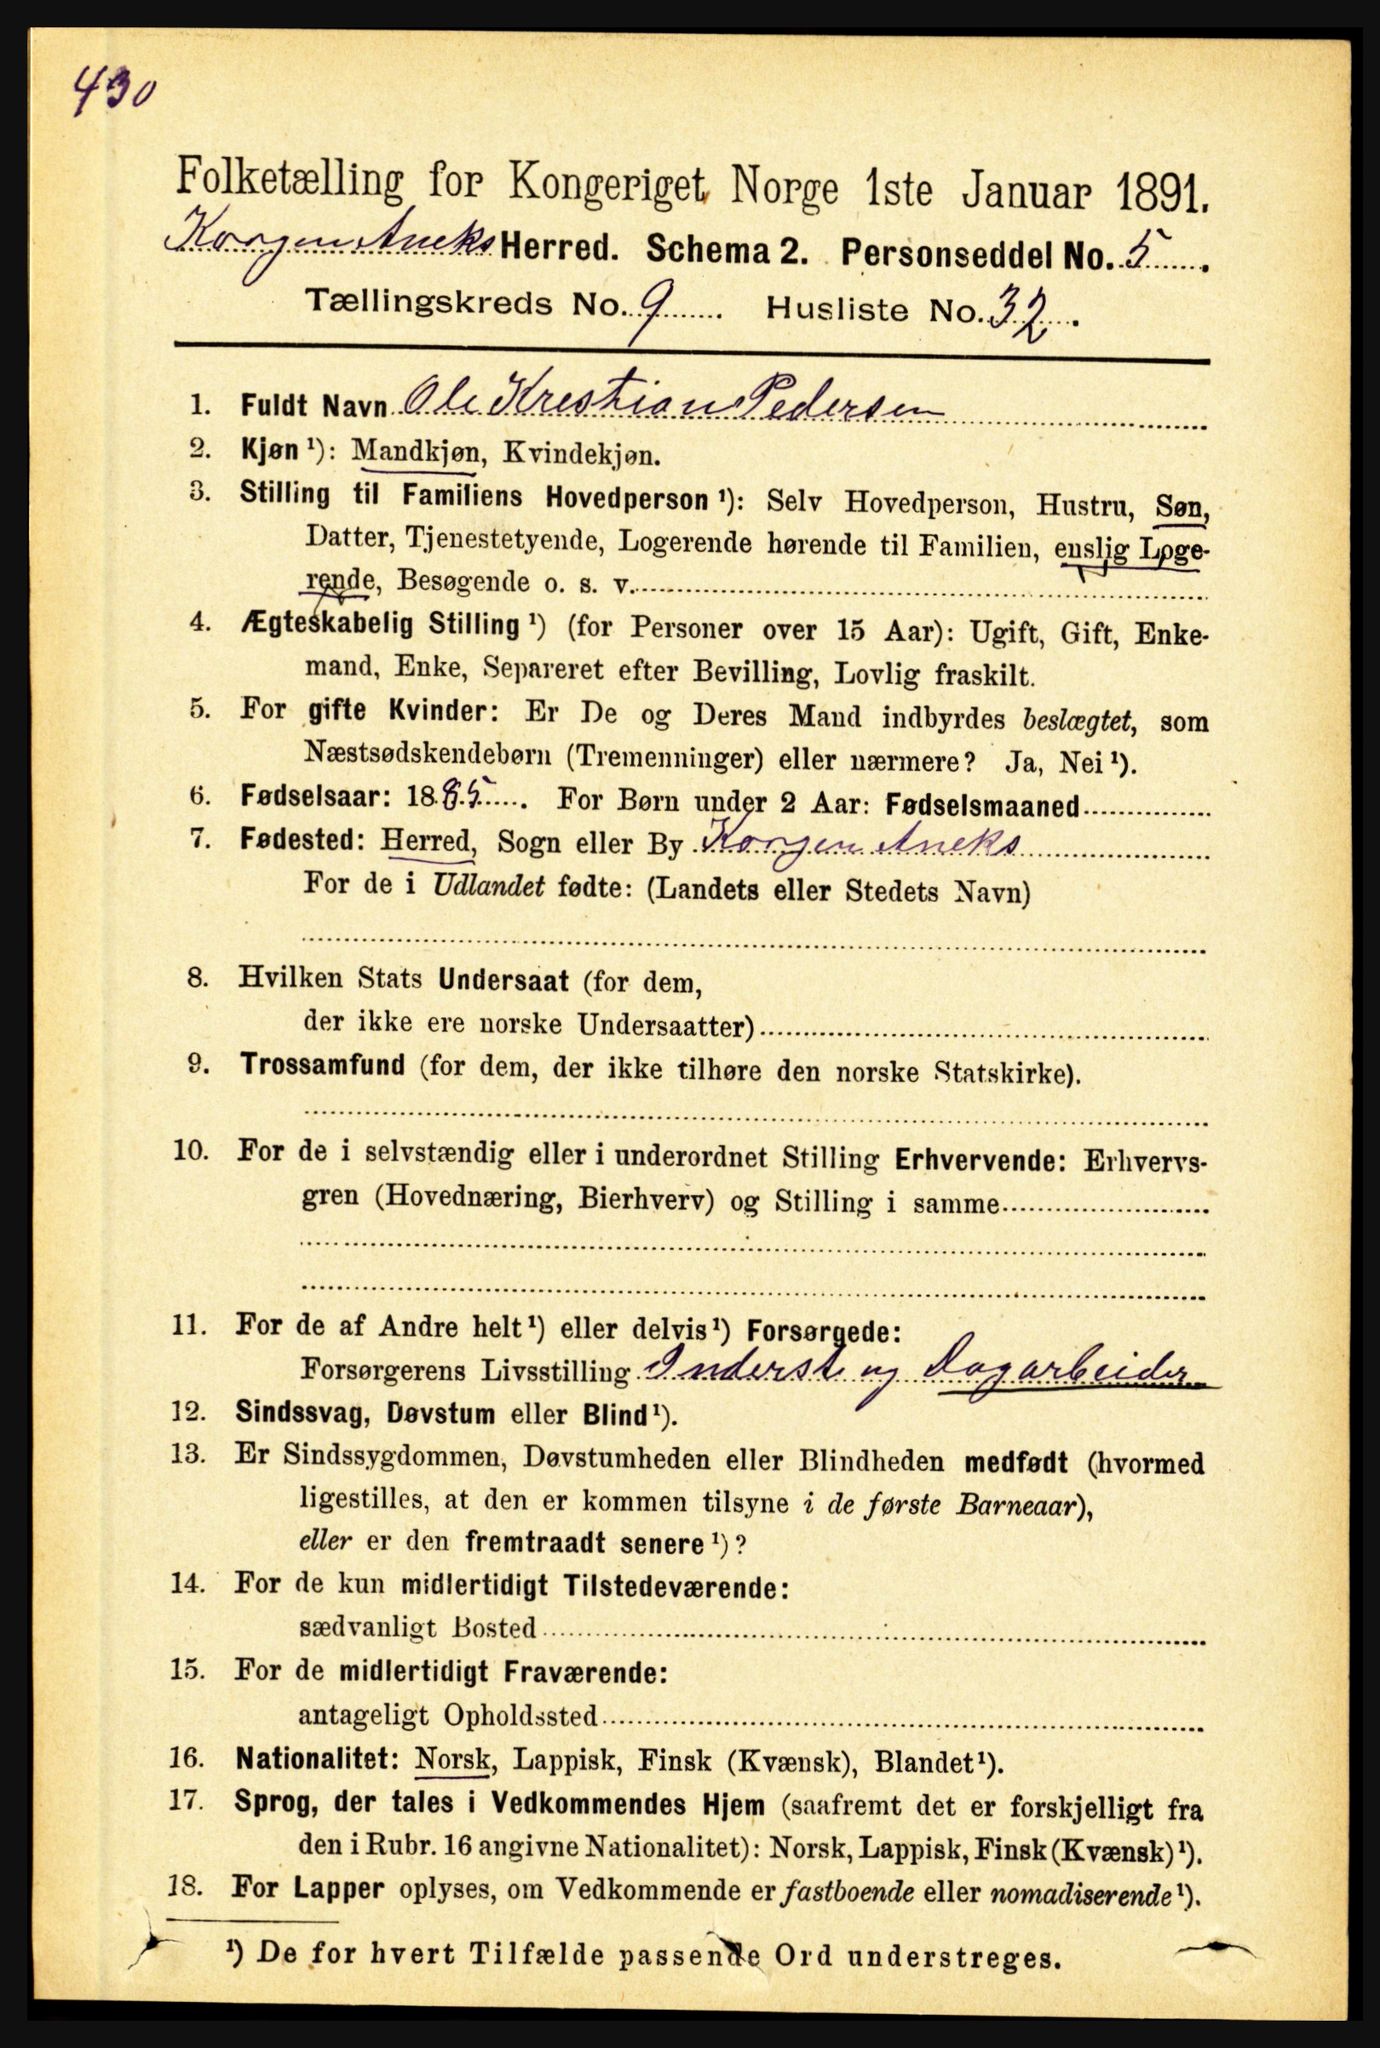 430
Folketælling for Kongeriget Norge 1ste Januar 1891.
Korgen Aneks Herred. Schema 2. Personseddel No. 5.
Tællingskreds No. 9. Husliste No. 32.
1. Fuldt Navn Ole Krestian Pedersen
2. Kjøn ¹): Mandkjøn, Kvindekjøn.
3. Stilling til Familiens Hovedperson ¹): Selv Hovedperson, Hustru, Søn,
Datter, Tjenestetyende, Logerende hørende til Familien, enslig Loge-
rende, Besøgende o. s. v.
4. Ægteskabelig Stilling ¹) (for Personer over 15 Aar): Ugift, Gift, Enke-
mand, Enke, Separeret efter Bevilling, Lovlig fraskilt.
5. For gifte Kvinder: Er De og Deres Mand indbyrdes beslægtet, som
Næstsødskendebørn (Tremenninger) eller nærmere? Ja, Nei ¹).
6. Fødselsaar: 1885. For Børn under 2 Aar: Fødselsmaaned
7. Fødested: Herred, Sogn eller By Korgen Aneks
For de i Udlandet fødte: (Landets eller Stedets Navn)
8. Hvilken Stats Undersaat (for dem,
der ikke ere norske Undersaatter)
9. Trossamfund (for dem, der ikke tilhøre den norske Statskirke).
10. For de i selvstændig eller i underordnet Stilling Erhvervende: Erhvervs-
gren (Hovednæring, Bierhverv) og Stilling i samme
11. For de af Andre helt ¹) eller delvis ¹) Forsørgede:
Forsørgerens Livsstilling Inderst og Dagarbeider
12. Sindssvag, Døvstum eller Blind ¹).
13. Er Sindssygdommen, Døvstumheden eller Blindheden medfødt (hvormed
ligestilles, at den er kommen tilsyne i de første Barneaar),
eller er den fremtraadt senere ¹)?
14. For de kun midlertidigt Tilstedeværende:
sædvanligt Bosted
15. For de midlertidigt Fraværende:
antageligt Opholdssted
16. Nationalitet: Norsk, Lappisk, Finsk (Kvænsk), Blandet ¹).
17. Sprog, der tales i Vedkommendes Hjem (saafremt det er forskjelligt fra
den i Rubr. 16 angivne Nationalitet): Norsk, Lappisk, Finsk (Kvænsk) ¹).
18. For Lapper oplyses, om Vedkommende er fastboende eller nomadiserende ¹).
¹) De for hvert Tilfælde passende Ord understreges.